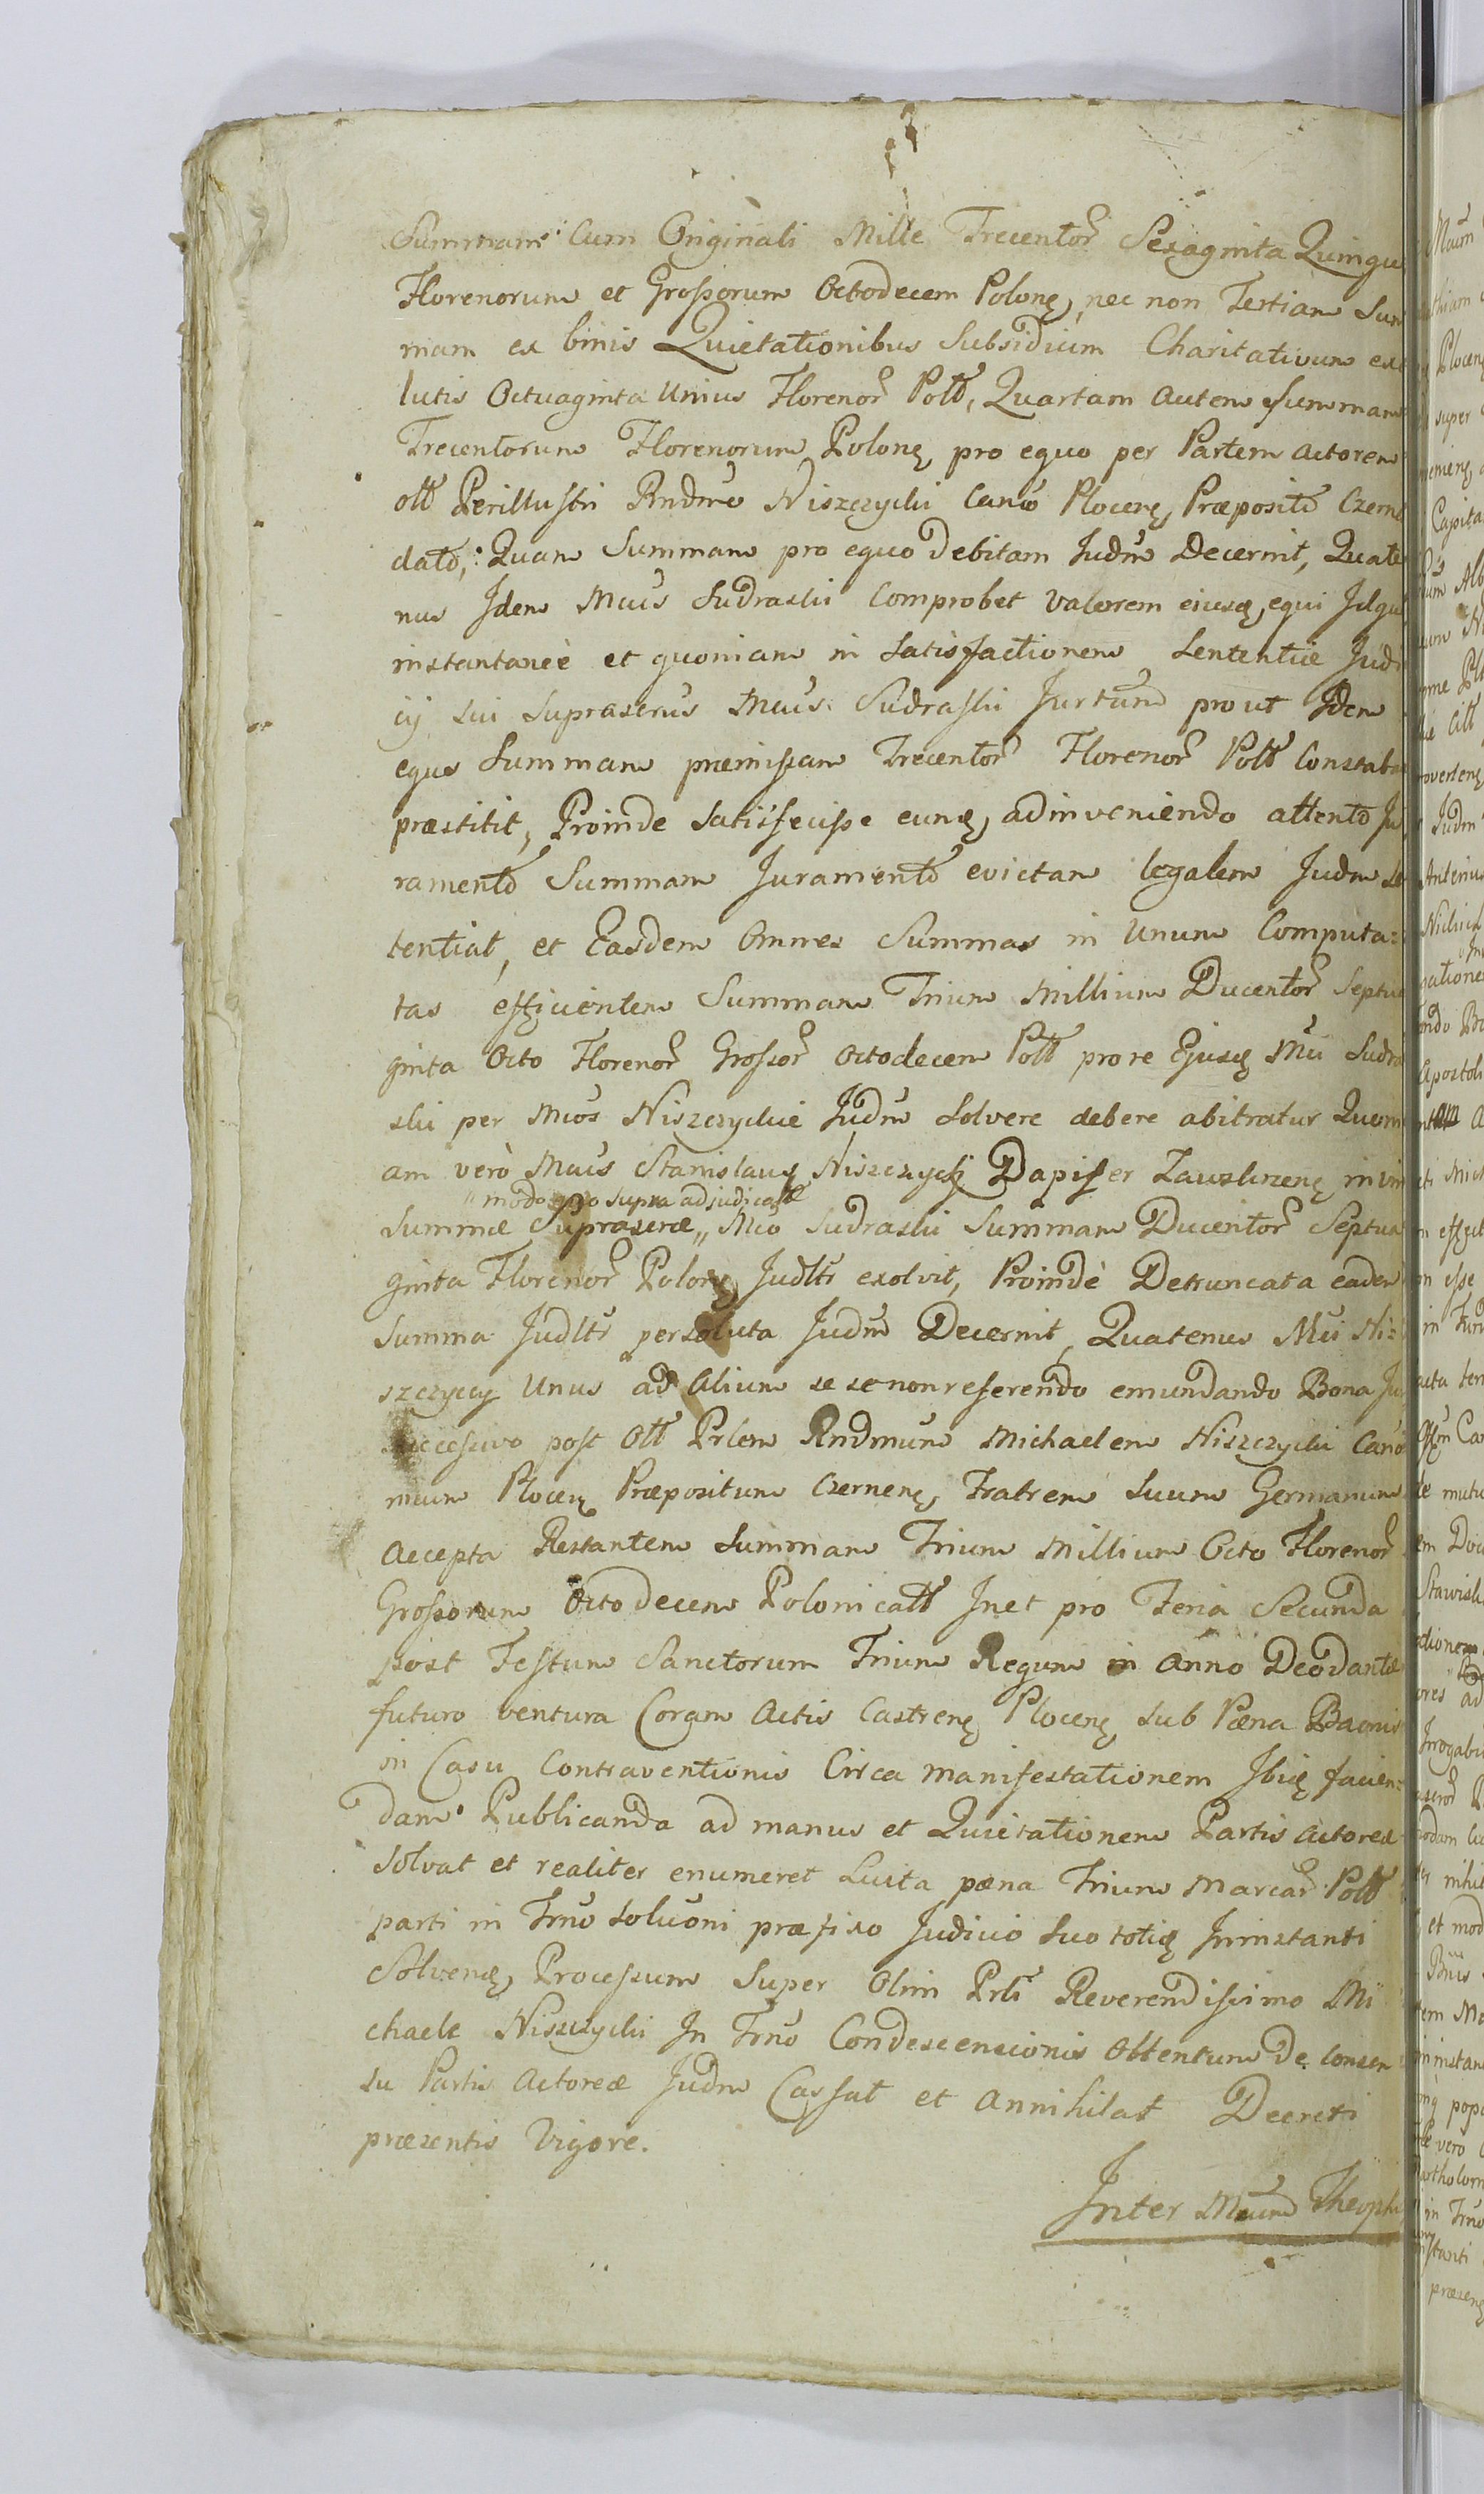 Summam: Cum Originali Mille Trecentor Sexaginta Quinqu
Florenorum et Grossorum Octodecem Polonę, nec non Tertiam Sum
mam ex binis Quietationibus Subsidium Charitativum exo
lutis Octuaginta Unius Florenor Poll, Quartam autem summam
Trecentorum Florenorum Polonę, pro equo per Partem actoream
oll Perillustri Rndmo Niszczycki Canco Plocenę, Præposito Czerne
dato,: Quam Summam pro equo debitam Judm Decernit, Quate
nus Idem Mcus Sudraski Comprobet Valorem eiusę, equi Idqu
instantaneè et quoniam in satisfactionem Sententiæ Judi
cij sui Suprascrus Mcus Sudraski Jurtum prout Idem
equs Summam præmissam Trecentor Florenor Poll Constaba
præstitit, Proinde Satisfecisse eumę, adinveniendo attento Ju
ramento Summam Juramento evictam legalem Judm Se
tentiat, et Easdem Omnes Summas in Unum Computa=
tas efficientem Summam Trium Millium Ducentor Septua
ginta Octo Florenor Grossor Octodecem Poll pro re Ejusę Mci Sudra
ski per Mcos Niszczyckie Judm Solvere debere abitratur Quoni
am verò Mcus Stanislaus Niszczycki Dapifer Zawskrzenę in vim
"modo quo supra adjudicatæ
Summæ Suprascræ „ Mco Sudraski Summam Ducentor Septua
ginta Florenor Polonę Judltr exolvit, Proindè Detruncata eadem
Summa Judltr persoluta Judm Decernit, Quatenus Mci Ni=
szczyccy Unus ad Alium se se non referendo emundando Bona Ju
Successivo post Oll Prlem Rndmum Michaelem Niszczycki Cano
nicum Plocenę Præpositum Czernenę, Fratrem Suum Germanum
accepta Restantem Summam Trium Millium Octo Florenor
Grossorum Octodecem Polonicall Inet pro Feria Secunda
post Festum Sanctorum Trium Regum in Anno Deodante
futuro ventura Coram Actis Castrenę Plocenę sub Pœna Bannis
in Casu Contraventionis Circa manifestationem Ibię facien=
dam Publicanda ad manus et Quietationem Partis actoreæ
solvat et realiter enumeret Luita pœna Trium Marcar Poll
parti in Trno soluoni præfixo Judicio Suo totię Ininstanti
Solvenę, Processum Super Olim Prli Reverendissimo Mi
chaele Niszczycki In Trno Condescensionis Obtentum de Consen
su Partis Actoreæ Judm Cassat et Annihilat Decreti
præsentis Vigore.
Inter Mcum Theophi